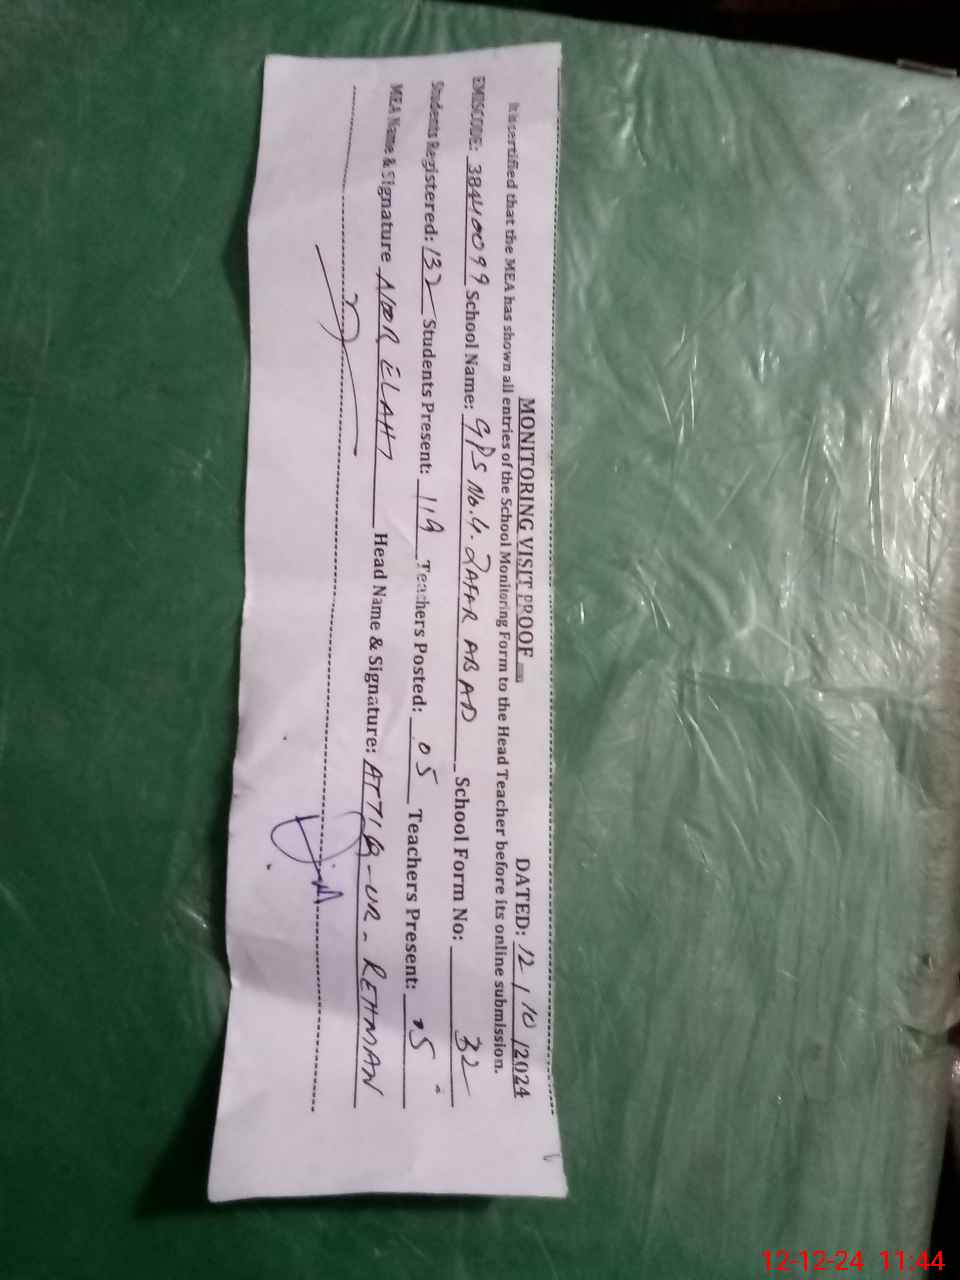 MONITORING VISIT PROOF DATED: 12/10/2024
It is certified that the MEA has shown all entries of the School Monitoring Form to the Head Teacher before its online submission.
EMISCODE: 38440099 School Name: GPS No.4. ZAFAR ABAD School Form No: 32
Students Registered: 132 Students Present: 119 Teachers Posted: 05 Teachers Present: 05
MEA Name & Signature NOOR ELAHI Head Name & Signature: ATTIQ-UR-REHMAN
12-12-24 11:44